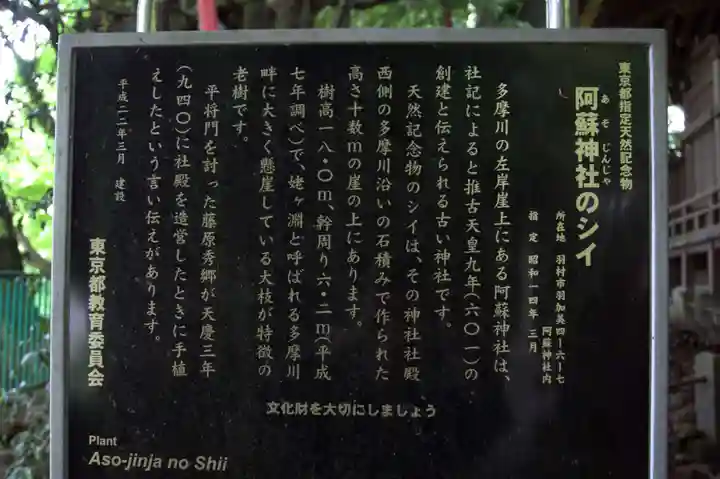 東京都指定天然記念物
あそじんじゃ
阿蘇神社のシイ
所在地 羽村市羽加美四ー六ー七
阿蘇神社内
指定 昭和一四年三月
多摩川の左岸崖上にある阿蘇神社は、
社記によると推古天皇九年（六〇一）の
創建と伝えられる古い神社です。
天然記念物のシイは、その神社社殿
西側の多摩川沿いの石積みで作られた
高さ十数mの崖の上にあります。
樹高一八・〇m、幹周り六・二m（平成
七年調べ）で、姥ヶ淵と呼ばれる多摩川
畔に大きく懸崖している大枝が特徴の
老樹です。
平将門を討った藤原秀郷が天慶三年
（九四〇）に社殿を造営したときに手植
えしたという言い伝えがあります。
平成一二年三月 建設
東京都教育委員会
文化財を大切にしましょう
Plant
Aso-jinja no Shii